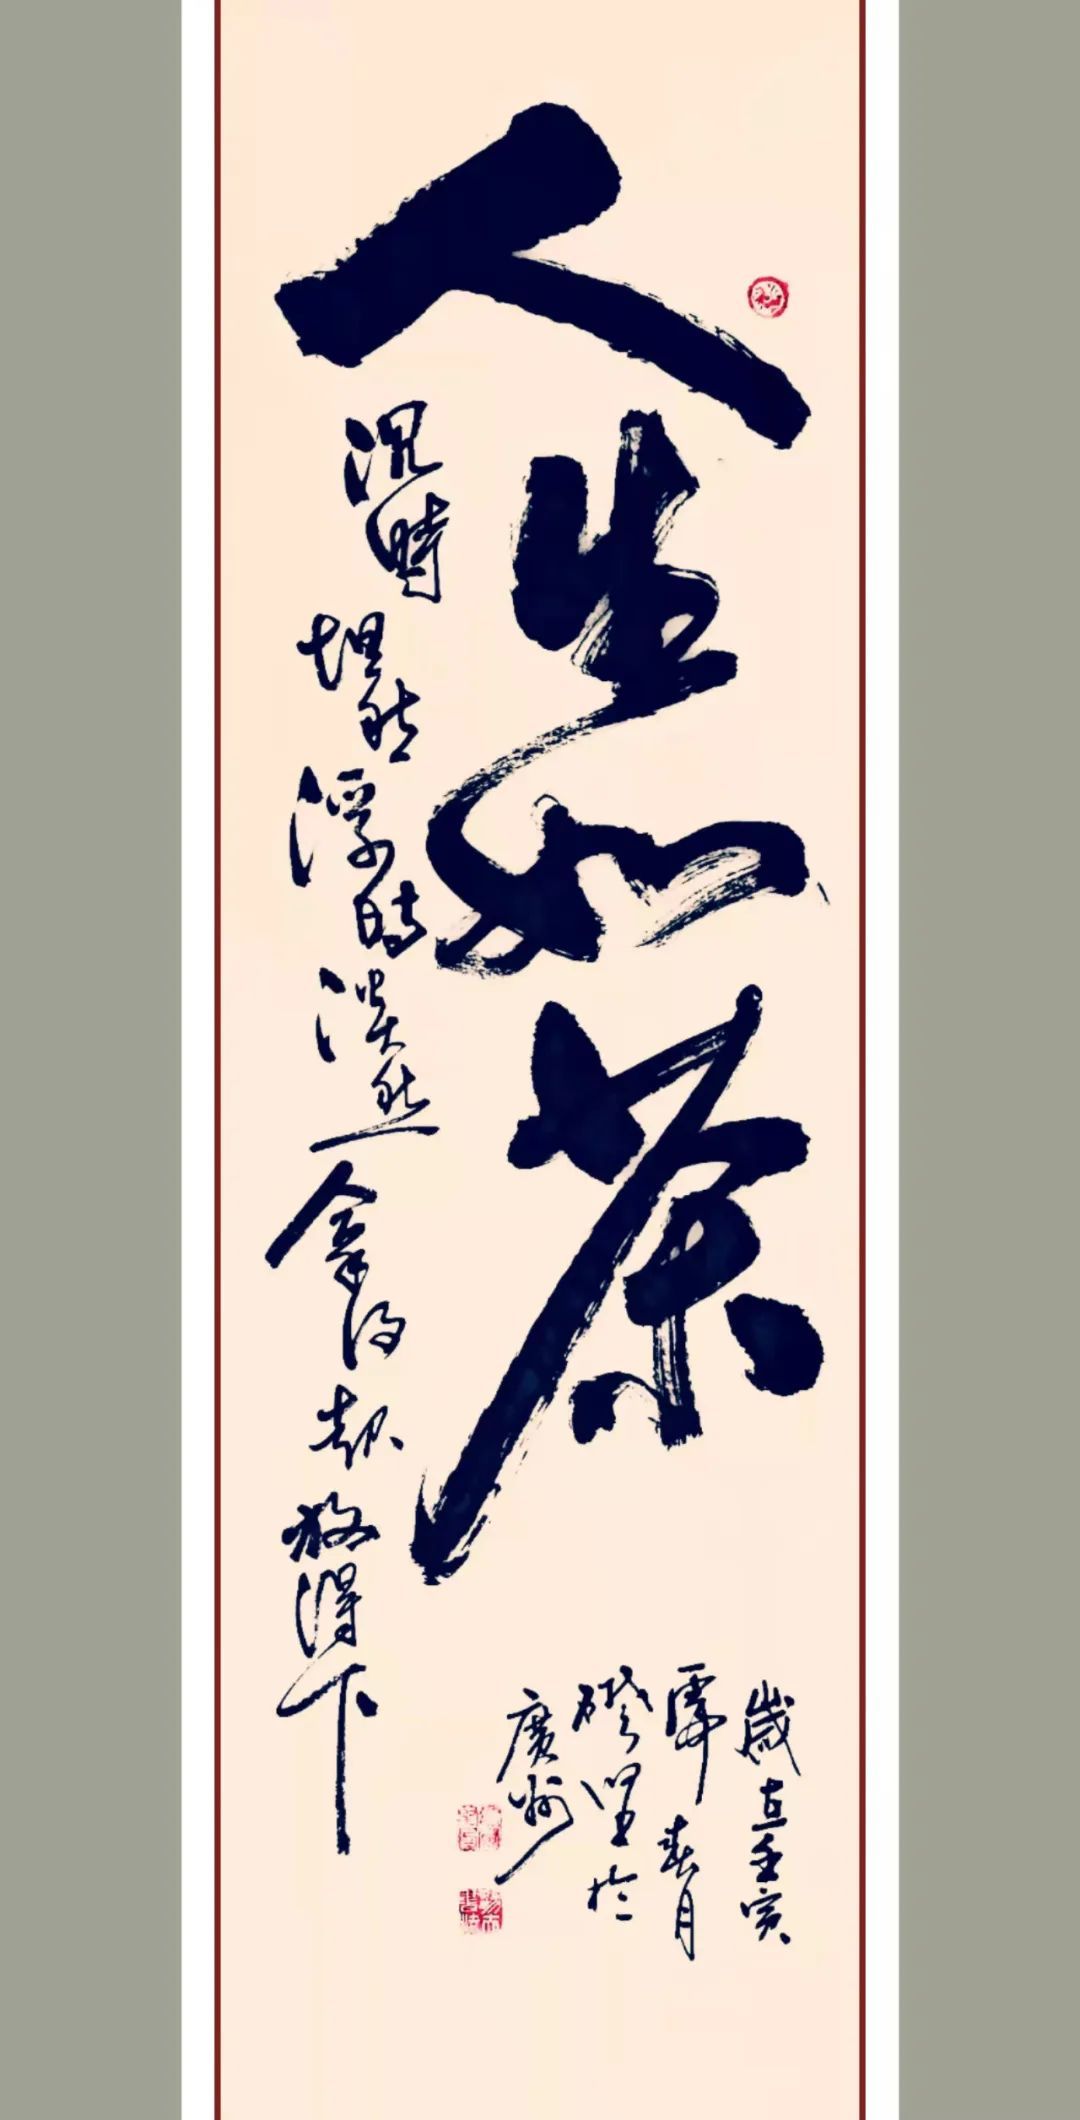 人生如茶
沉時坦然浮時淡然拿得起放得下
歲在壬寅
虎春月
於
廣州